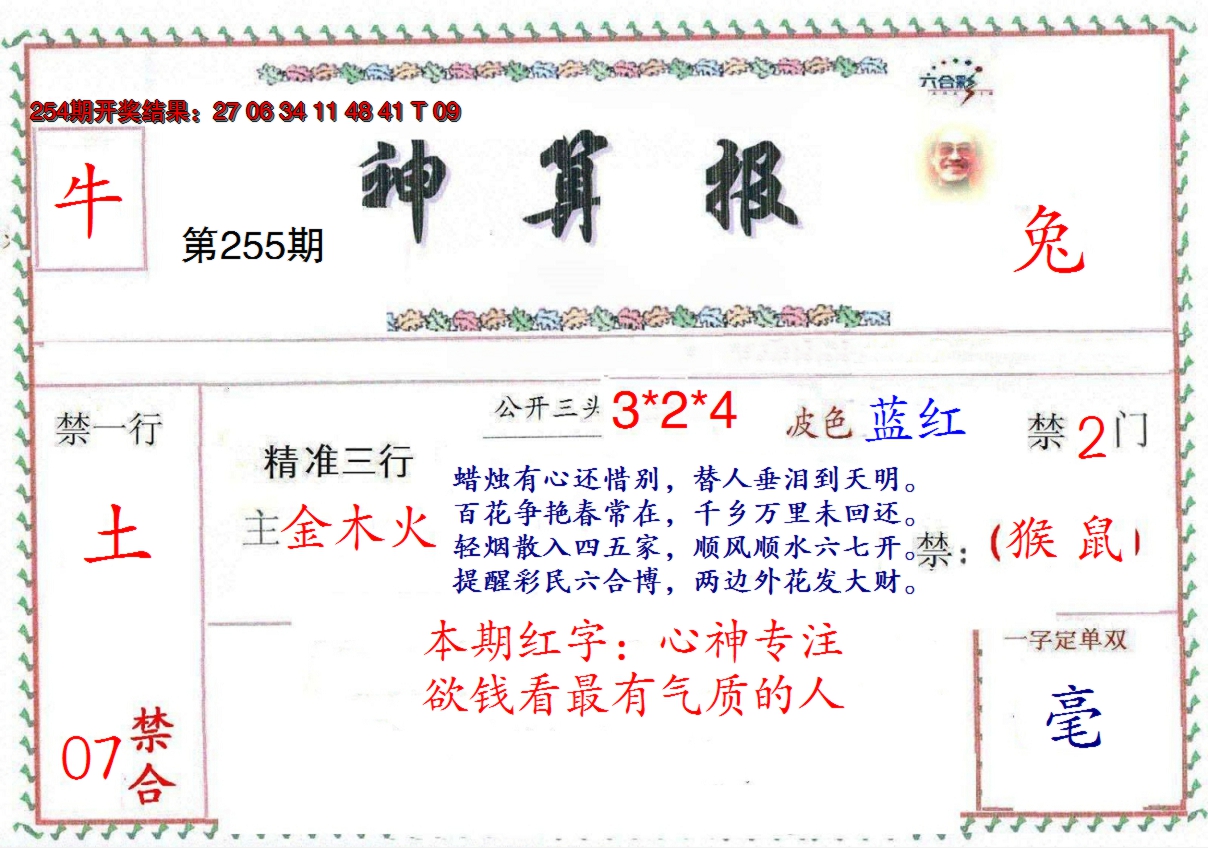 254期开奖结果：27 06 34 11 48 41 T 09
六合彩
牛
神算报
第255期
兔
禁一行
土
07禁合
精准三行
主金木火
公开三头 3*2*4
波色 蓝红
蜡烛有心还惜别，替人垂泪到天明。
百花争艳春常在，千乡万里未回还。
轻烟散入四五家，顺风顺水六七开。
提醒彩民六合博，两边外花发大财。
禁2门
禁：(猴 鼠)
本期红字：心神专注
欲钱看最有气质的人
一字定单双
毫